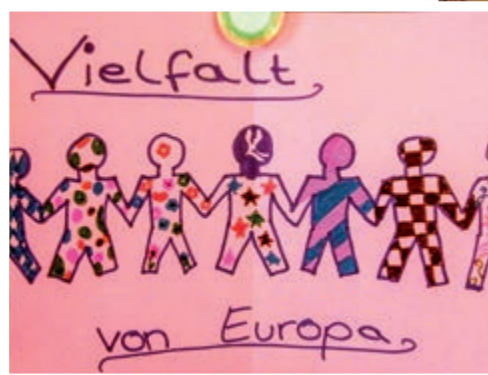 Vielfalt
von Europa